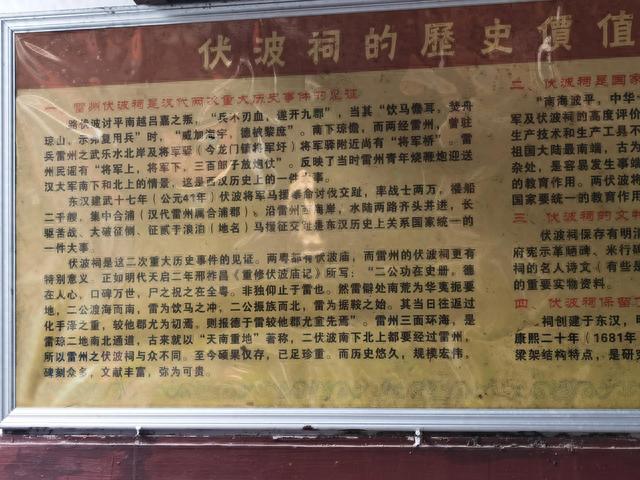 伏波祠的歷史價值
一、雷州伏波祠是汉代两次重大历史事件的见证
路伏波讨平南越吕嘉之叛，“兵不刃血，遂开九郡”，当其“饮马儋耳，焚舟
琼山，示弗复用兵”时，“威加海宇，德被黎庶”。南下琼儋，而两经雷州，曾驻
兵雷州之武乐水北岸及将军驿（今龙门镇将军圩）将军驿附近尚有“将军桥”。雷
州民谣有“将军上，将军下，三百郎子放炮仗”。反映了当时雷州青年烧鞭炮迎送
汉大军南下和北上的情景，这是西汉历史上的一件大事。
东汉建武十七年（公元41年）伏波将军马援奉命讨伐交趾，率战士两万，楼船
二千艘，集中合浦（汉代雷州属合浦郡）、沿雷州西海岸，水陆两路齐头并进，长
驱舌战、大破征侧、征贰于浪泊（地名）马援征交趾是东汉历史上关系国家统一的
一件大事。
伏波祠是这二次重大历史事件的见证。两粤都有伏波庙，而雷州的伏波祠更有
特别意义。正如明代天启二年邢祚昌《重修伏波庙记》所写：“二公功在史册，德
在人心，口碑万世，尸之祝之在全粤。非独仰止于雷也。然雷僻处南荒为华夷扼要
地，二公渡海而南，雷为饮马之冲，二公振旅而北，雷为据鞍之始。其当日往返过
化手泽之重，较他郡尤为切焉，则报德于雷较他郡尤童先焉”。雷州三面环海，是
雷琼二地南北通道，古来就以“天南重地”著称，二伏波南下北上都要经过雷州，
所以雷州之伏波祠与众不同。至今硕果仅存，已足珍重。而历史悠久，规模宏伟。
碑刻众多，文献丰富，弥为可贵。
二、伏波祠是国家
“南海波平，中华一
军及伏波祠的高度评价
生产技术和生产工具不
祖国大陆最南端，古为
杂处，是容易发生事端
的教育作用。两伏波将
国家要统一的教育作用。
三、伏波祠的文物
伏波祠保存有明清
府宪示革陋碑、米行规
祠的名人诗文（有些是
的重要实物资料。
四、伏波祠保留
祠创建于东汉，明
康熙二十年（1681年
梁架结构特点，是研究